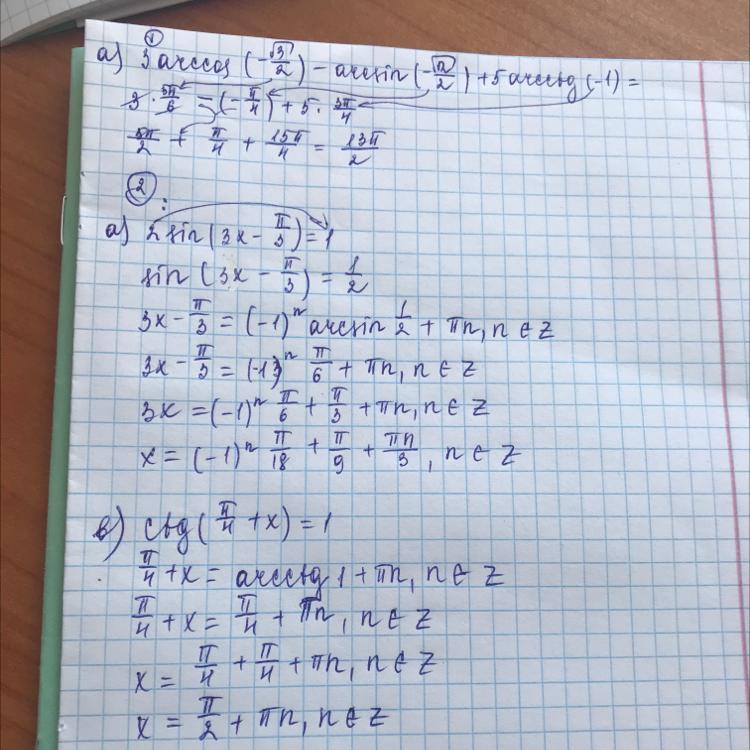 ①
а) 3 arccos (-√3/2) - arcsin (-√2/2) + 5 arcctg (-1) =
3 · 5π/6 = (-π/4) + 5 · 3π/4
5π/2 + π/4 + 15π/4 = 13π/2
②:
а) 2 sin (3x - π/3) = 1
sin (3x - π/3) = 1/2
3x - π/3 = (-1)ⁿ arcsin 1/2 + πn, n ∈ Z
3x - π/3 = (-1)ⁿ π/6 + πn, n ∈ Z
3x = (-1)ⁿ π/6 + π/3 + πn, n ∈ Z
x = (-1)ⁿ π/18 + π/9 + πn/3, n ∈ Z
в) ctg (π/4 + x) = 1
π/4 + x = arcctg 1 + πn, n ∈ Z
π/4 + x = π/4 + πn, n ∈ Z
x = π/4 + π/4 + πn, n ∈ Z
x = π/2 + πn, n ∈ Z